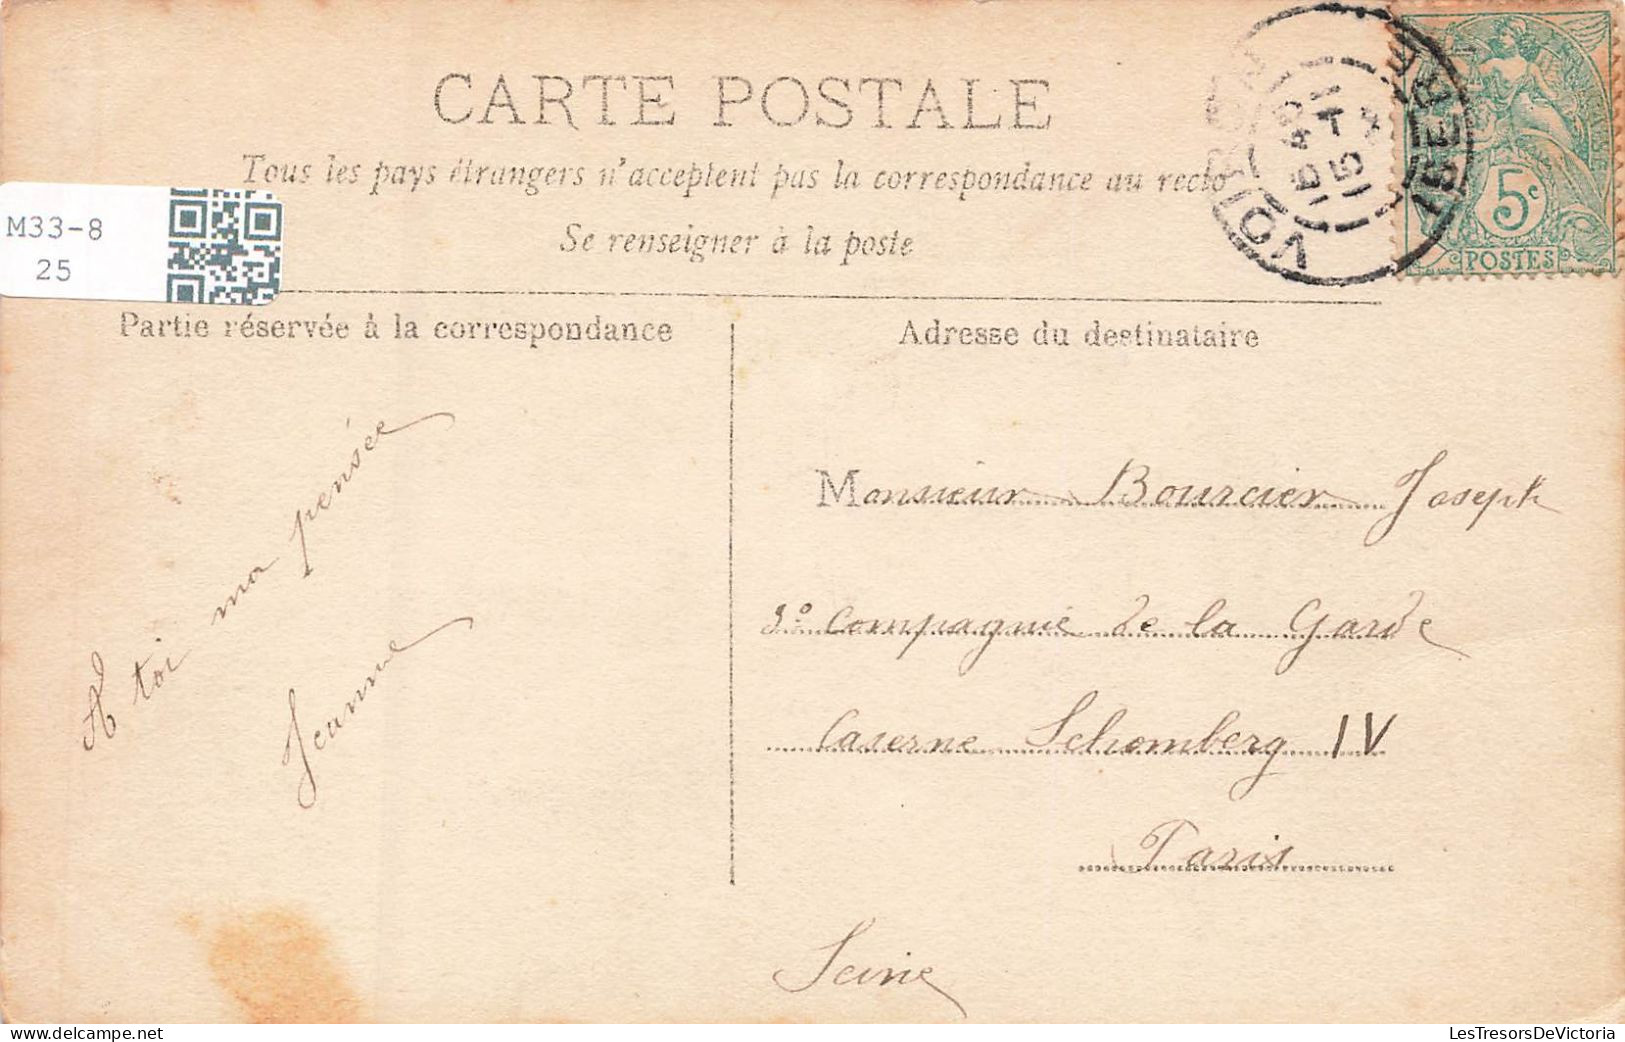 CARTE POSTALE
Tous les pays étrangers n'acceptent pas la correspondance au recto
Se renseigner à la poste
M33-8
25
Partie réservée à la correspondance
Adresse du destinataire
VOIRON
ISÈRE
5c
POSTES
A toi ma pensée
Jeanne
Monsieur Bourcier Joseph
3e Compagnie de la Garde
Caserne Schomberg IV
Paris
Seine
LesTresorsDeVictoria
delcampe.net